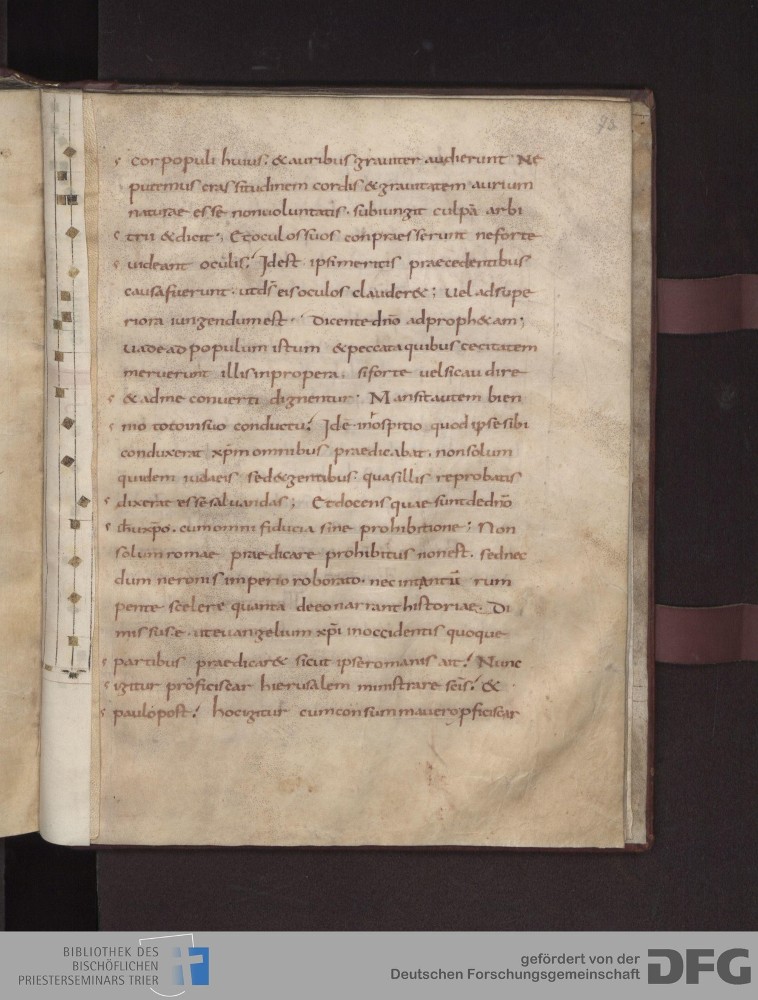 93
cor populi huius; & auribus grauiter audierunt Ne
putemus crassitudinem cordis & grauitatem aurium
naturae esse non uoluntatis. subiungit culpā arbi
trii & dicit; Et oculos suos conpraesserunt ne forte
uideant oculis; Idest ipsi meritis praecedentibus
causa fuerunt. ut dš eis oculos clauder&; Vel ad supe
riora iungendum est. Dicente dn̄o ad proph&am;
uade ad populum istum & peccata quibus cecitatem
meruerunt illis inpropera. si forte uel sic audire
& ad me conuerti dignentur. Mansit autem bien
nio toto in suo conductu; Idē in hospitio quod ipse sibi
conduxerat xp̄m omnibus praedicabat. non solum
quidem iudaeis sed & gentibus. quas illis reprobatis
dixerat esse saluandas; Et docens quae sunt de dn̄o
ih̄u xp̄o. cum omni fiducia sine prohibitione; Non
solum romae praedicare prohibitus non est. sed nec
dum neronis imperio roborato. nec in tantū rum
pente scelere quanta de eo narrant historiae. Di
missus e. ut euangelium xp̄i in occidentis quoque
partibus praedicar& sicut ipse romanis ait; Nunc
igitur proficiscar hierusalem ministrare sc̄is; &
paulo post; hoc igitur cum consummauero pficiscar
BIBLIOTHEK DES
BISCHÖFLICHEN
PRIESTERSEMINARS TRIER
gefördert von der
Deutschen Forschungsgemeinschaft
DFG